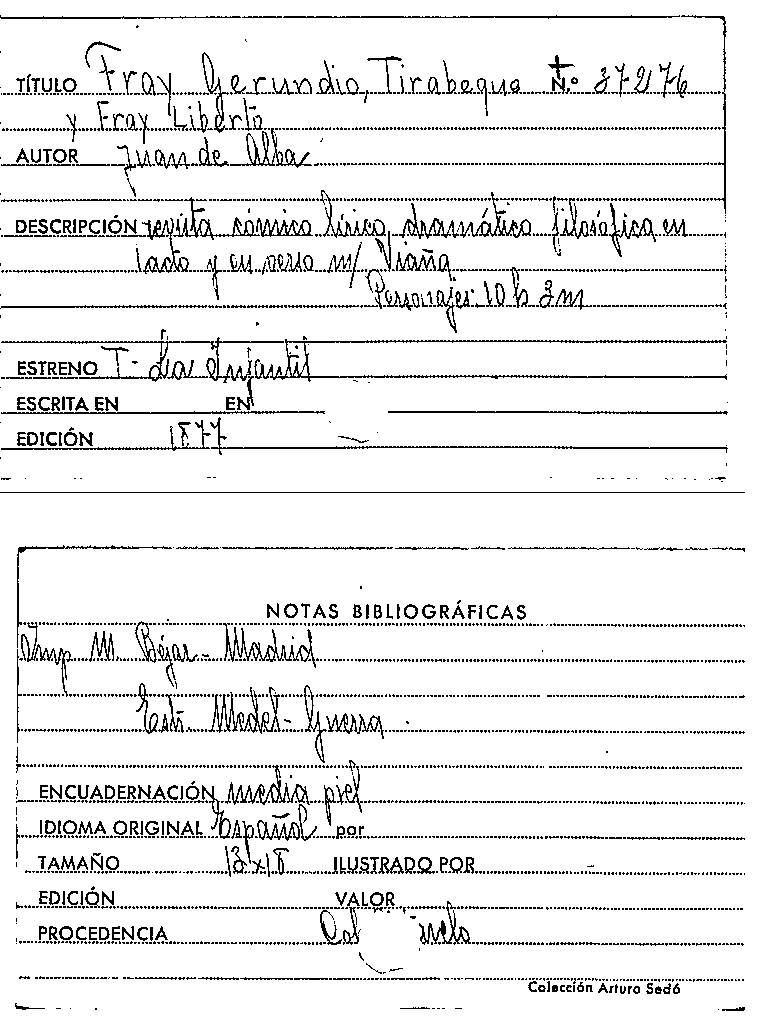 TÍTULO Fray Gerundio, Tirabeque N.º 37276
y Fray Liberto
AUTOR Juan de Alba
DESCRIPCIÓN revista cómico lírico, dramático filosófica en
1 acto y en verso m/ Viaña
Personajes: 10 h 3 m
ESTRENO T- La Infantil
ESCRITA EN EN
EDICIÓN 1877
NOTAS BIBLIOGRÁFICAS
Imp M. Béjar - Madrid
Estr. Medel - Guerra
ENCUADERNACIÓN media piel
IDIOMA ORIGINAL Español por
TAMAÑO 13x18 ILUSTRADO POR -
EDICIÓN VALOR
PROCEDENCIA
Colección Arturo Sedó